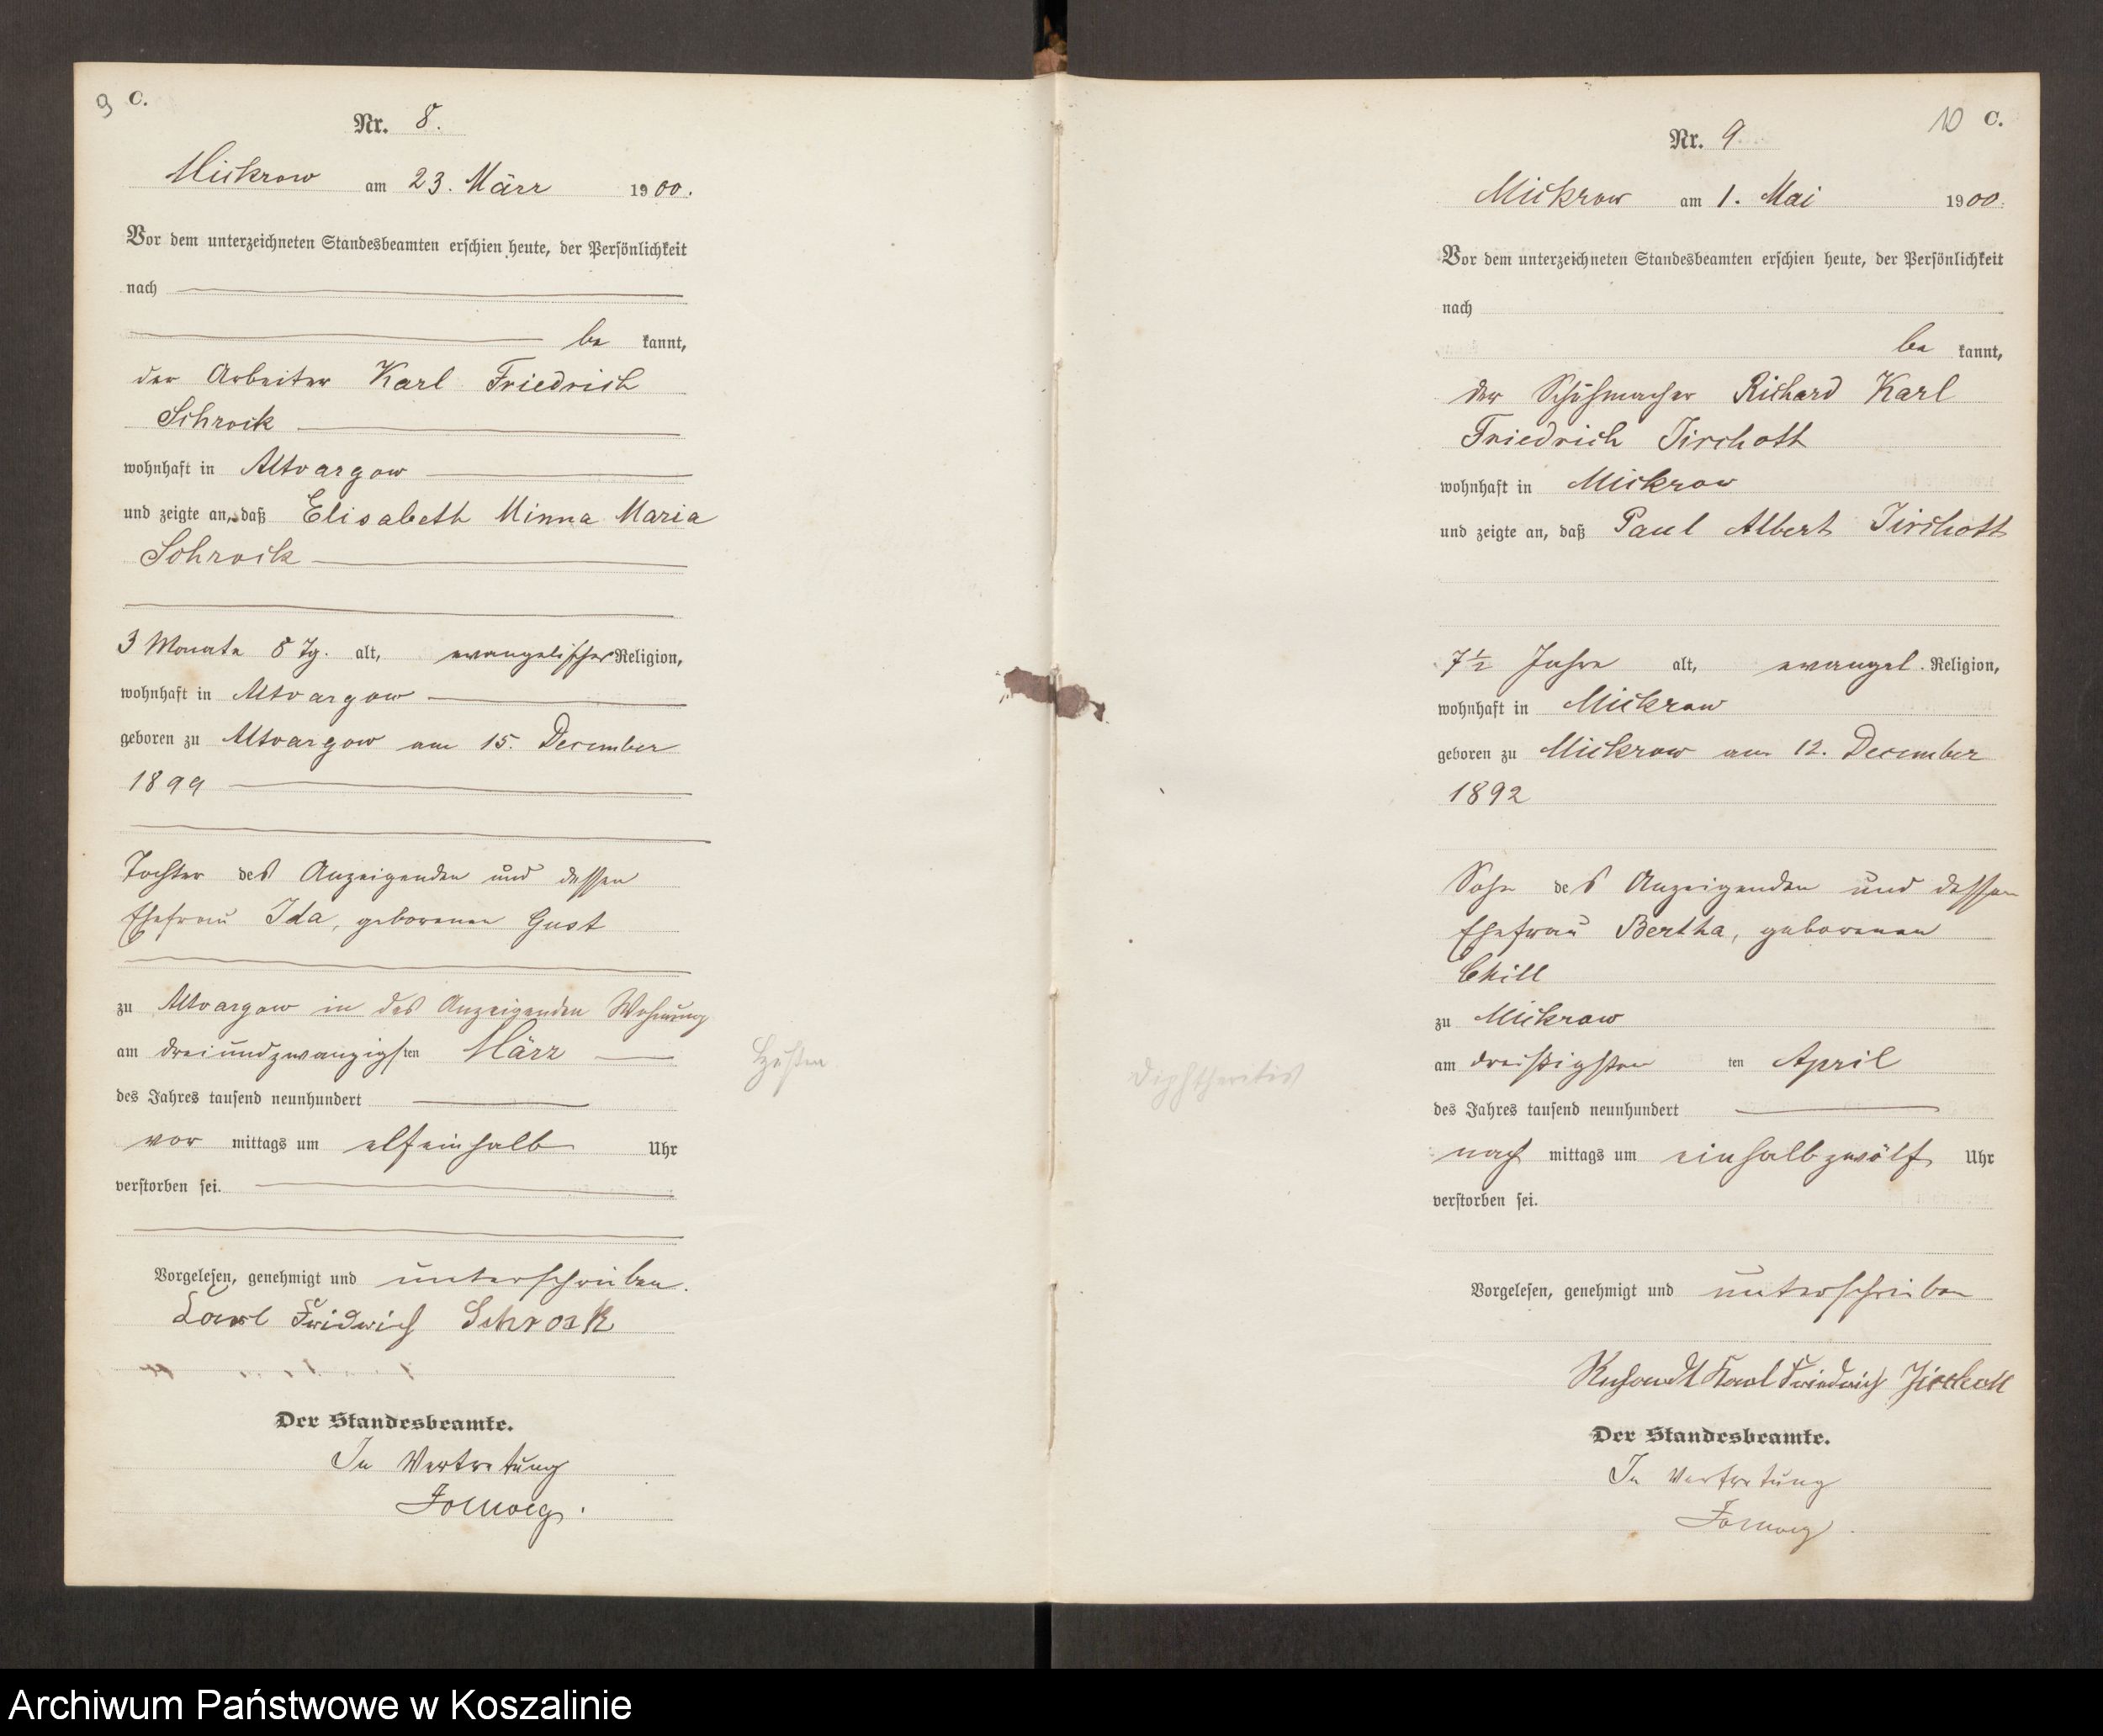 9 C.
Nr. 8.
Mickrow am 23. März 1900.
Vor dem unterzeichneten Standesbeamten erschien heute, der Persönlichkeit
nach
be kannt,
der Arbeiter Karl Friedrich
Schrock
wohnhaft in Altvargow
und zeigte an, daß Elisabeth Minna Maria
Schrock
3 Monate 8 Tg. alt, evangelischer Religion,
wohnhaft in Altvargow
geboren zu Altvargow am 15. December
1899
Tochter des Anzeigenden und dessen
Ehefrau Ida, geborenen Gust
zu Altvargow in des Anzeigenden Wohnung
am dreiundzwanzigsten März
des Jahres tausend neunhundert
vor mittags um elfeinhalb Uhr
verstorben sei.
Vorgelesen, genehmigt und unterschrieben.
Karl Fridrich Schrock
Der Standesbeamte.
In Vertretung
Husten
10 C.
Nr. 9
Mickrow am 1. Mai 1900.
Vor dem unterzeichneten Standesbeamten erschien heute, der Persönlichkeit
nach
be kannt,
der Schuhmacher Richard Karl
Friedrich Jirchott
wohnhaft in Mickrow
und zeigte an, daß Paul Albert Jirchott
7 1/2 Jahre alt, evangel. Religion,
wohnhaft in Mickrow
geboren zu Mickrow am 12. December
1892
Sohn des Anzeigenden und dessen
Ehefrau Bertha, geborenen
zu Mickrow
am dreißigsten ten April
des Jahres tausend neunhundert
nach mittags um einhalbzwölf Uhr
verstorben sei.
Vorgelesen, genehmigt und unterschrieben
Karl Friedrich Jirchott
Der Standesbeamte.
In Vertretung
Diphtheritis
Archiwum Państwowe w Koszalinie